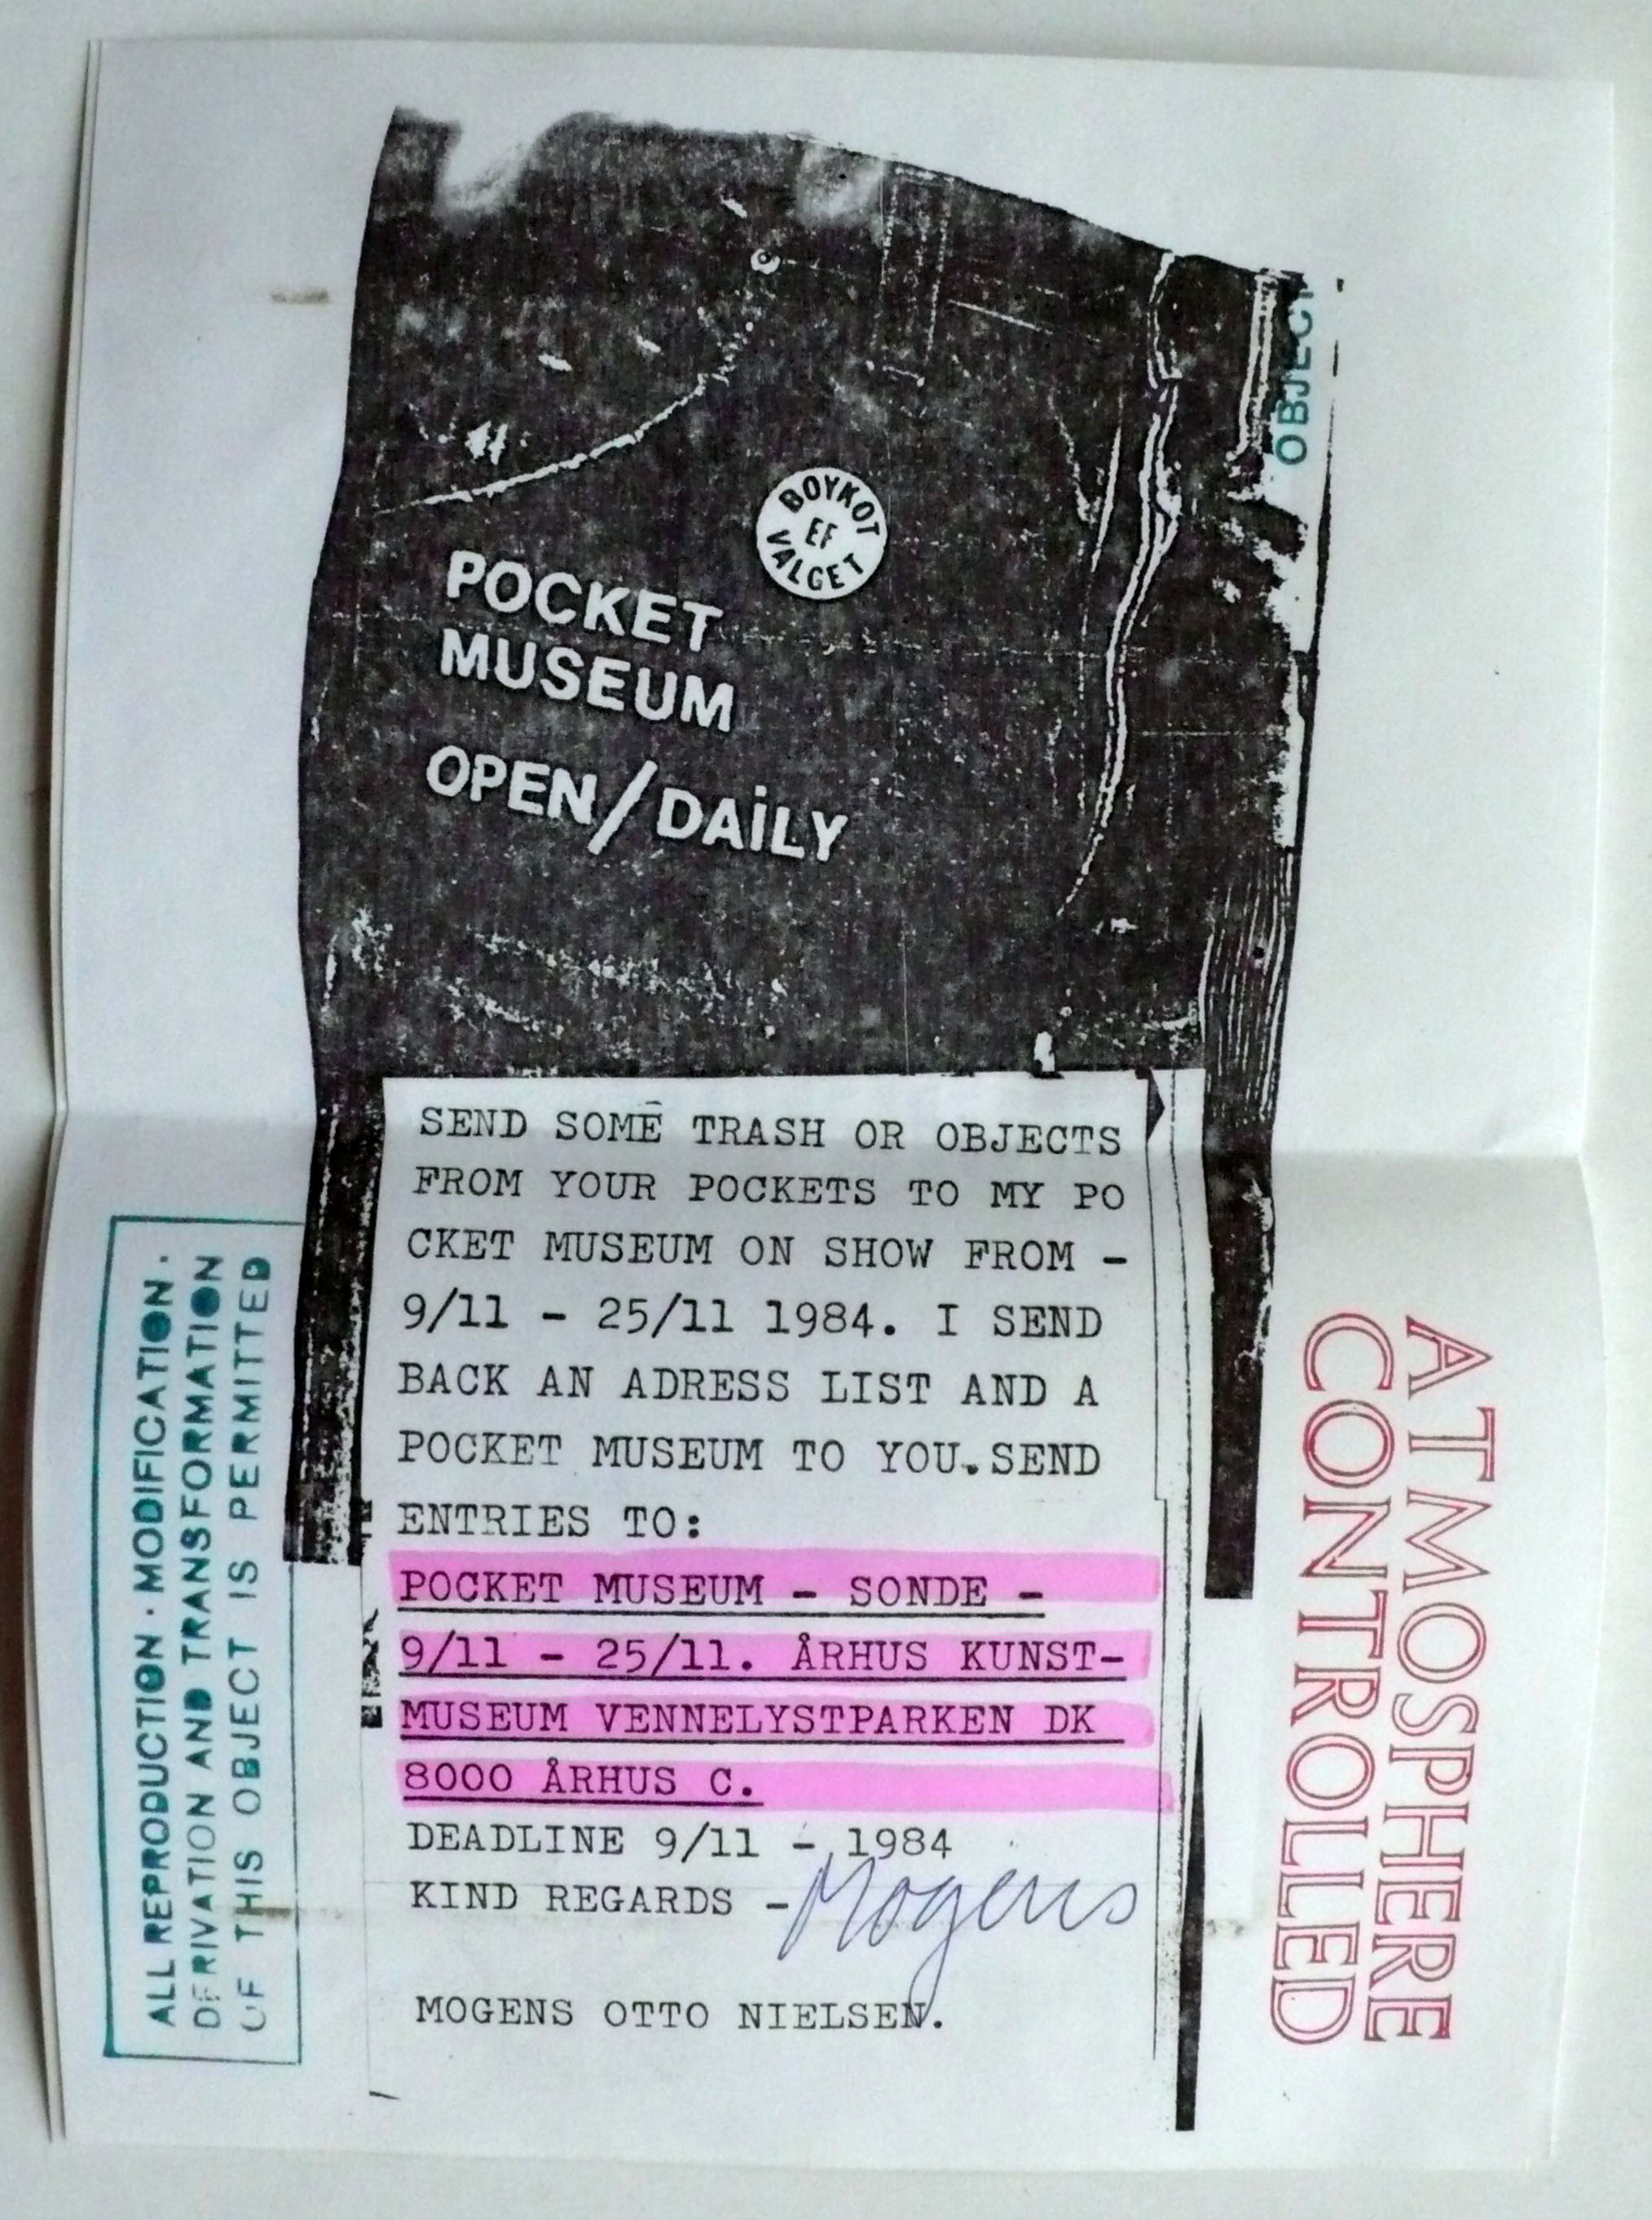 OBJECT
BOYKOT
EF
VALGET
POCKET
MUSEUM
OPEN/DAİLY
SEND SOME TRASH OR OBJECTS
FROM YOUR POCKETS TO MY PO
CKET MUSEUM ON SHOW FROM -
9/11 - 25/11 1984. I SEND
BACK AN ADRESS LIST AND A
POCKET MUSEUM TO YOU.SEND
ENTRIES TO:
POCKET MUSEUM - SONDE -
9/11 - 25/11. ÅRHUS KUNST-
MUSEUM VENNELYSTPARKEN DK
8000 ÅRHUS C.
DEADLINE 9/11 - 1984
KIND REGARDS - Mogens
MOGENS OTTO NIELSEN.
ALL REPRODUCTION · MODIFICATION ·
DERIVATION AND TRANSFORMATION
OF THIS OBJECT IS PERMITTED
ATMOSPHERE
CONTROLLED